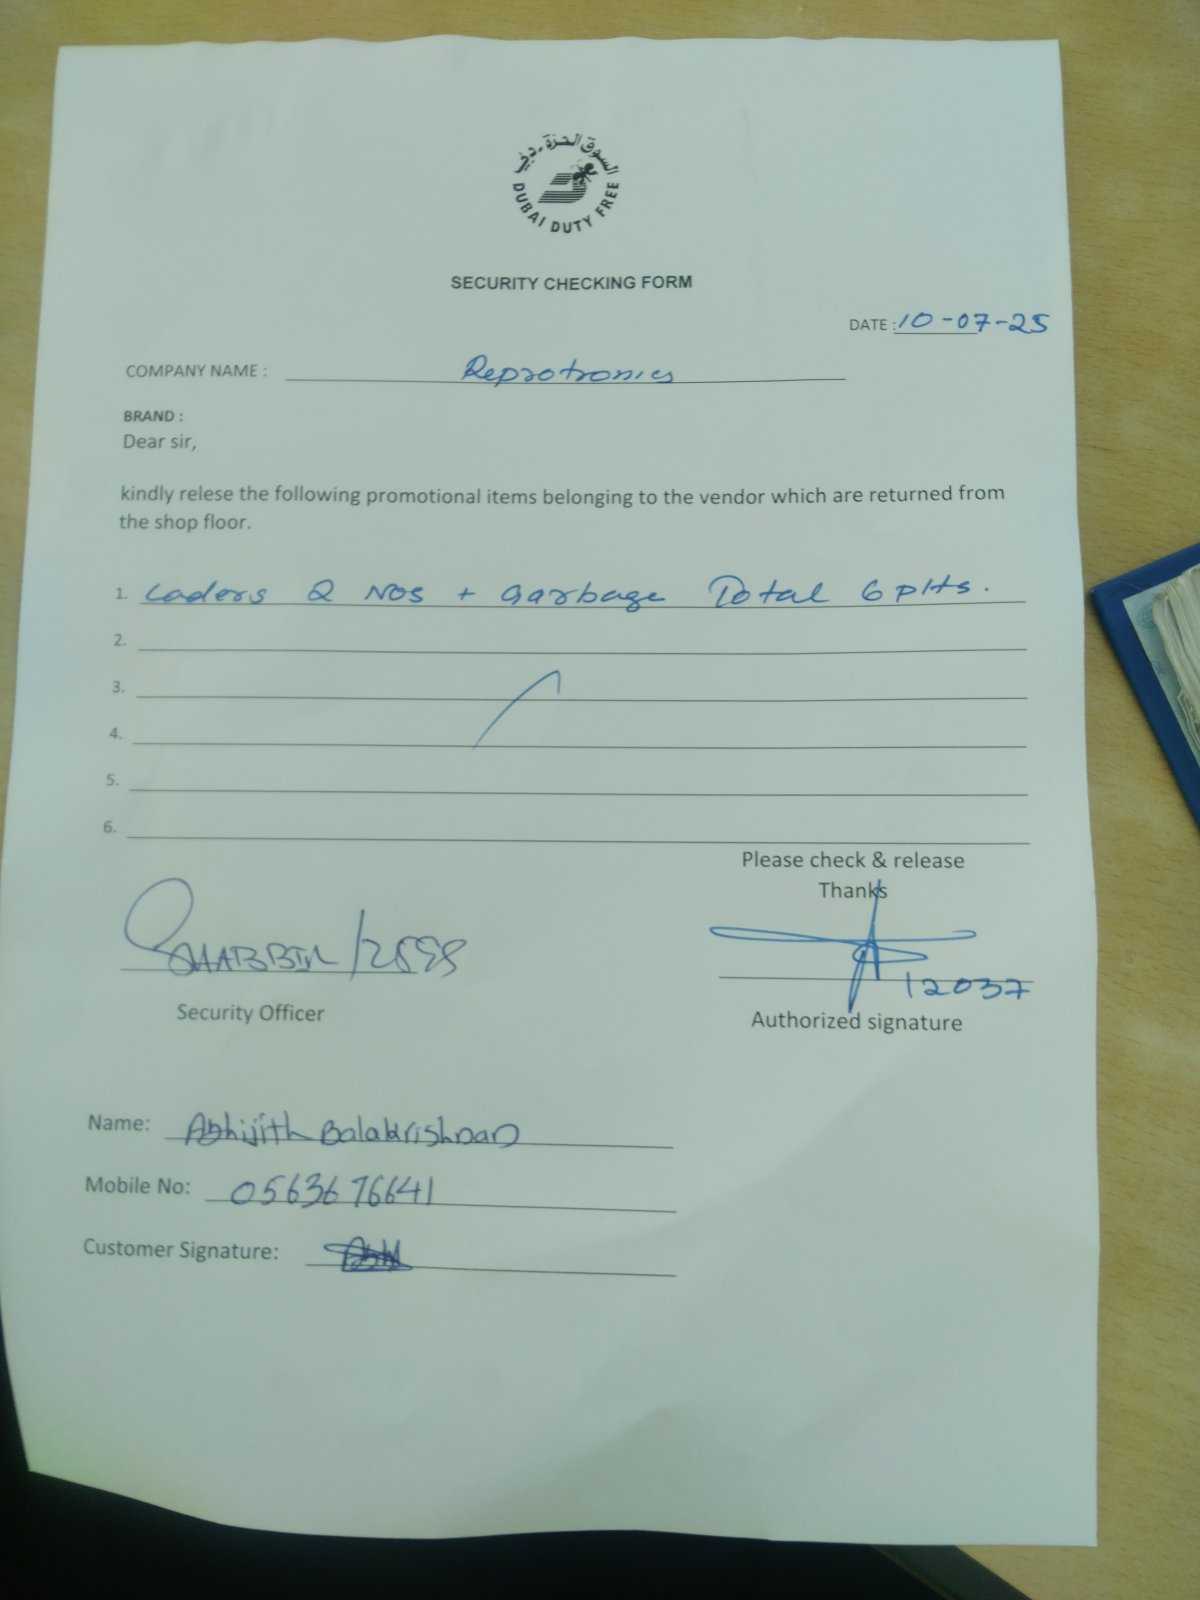 السوق الحرة - دبي
DUBAI DUTY FREE
SECURITY CHECKING FORM
DATE : 10-07-25
COMPANY NAME : Reprotronics
BRAND :
Dear sir,
kindly relese the following promotional items belonging to the vendor which are returned from
the shop floor.
1. Laders 2 NOS + Garbage Total 6 plts.
2.
3.
4.
5.
6.
Please check & release
Thanks
12037
Security Officer
Authorized signature
Name: Abhijith Balakrishnan
Mobile No: 0563676641
Customer Signature: